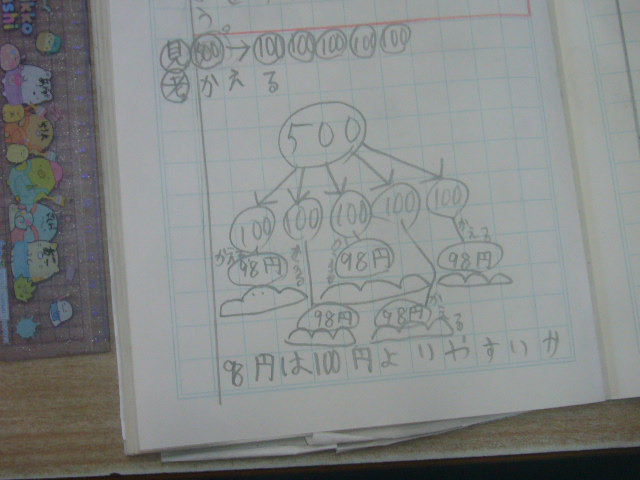 う。
見 500→100 100 100 100 100
考 かえる
500
100 100 100 100 100
かえる かえる かえる かえる
98円 98円 98円
98円 98円 かえる
98円は100円よりやすいか